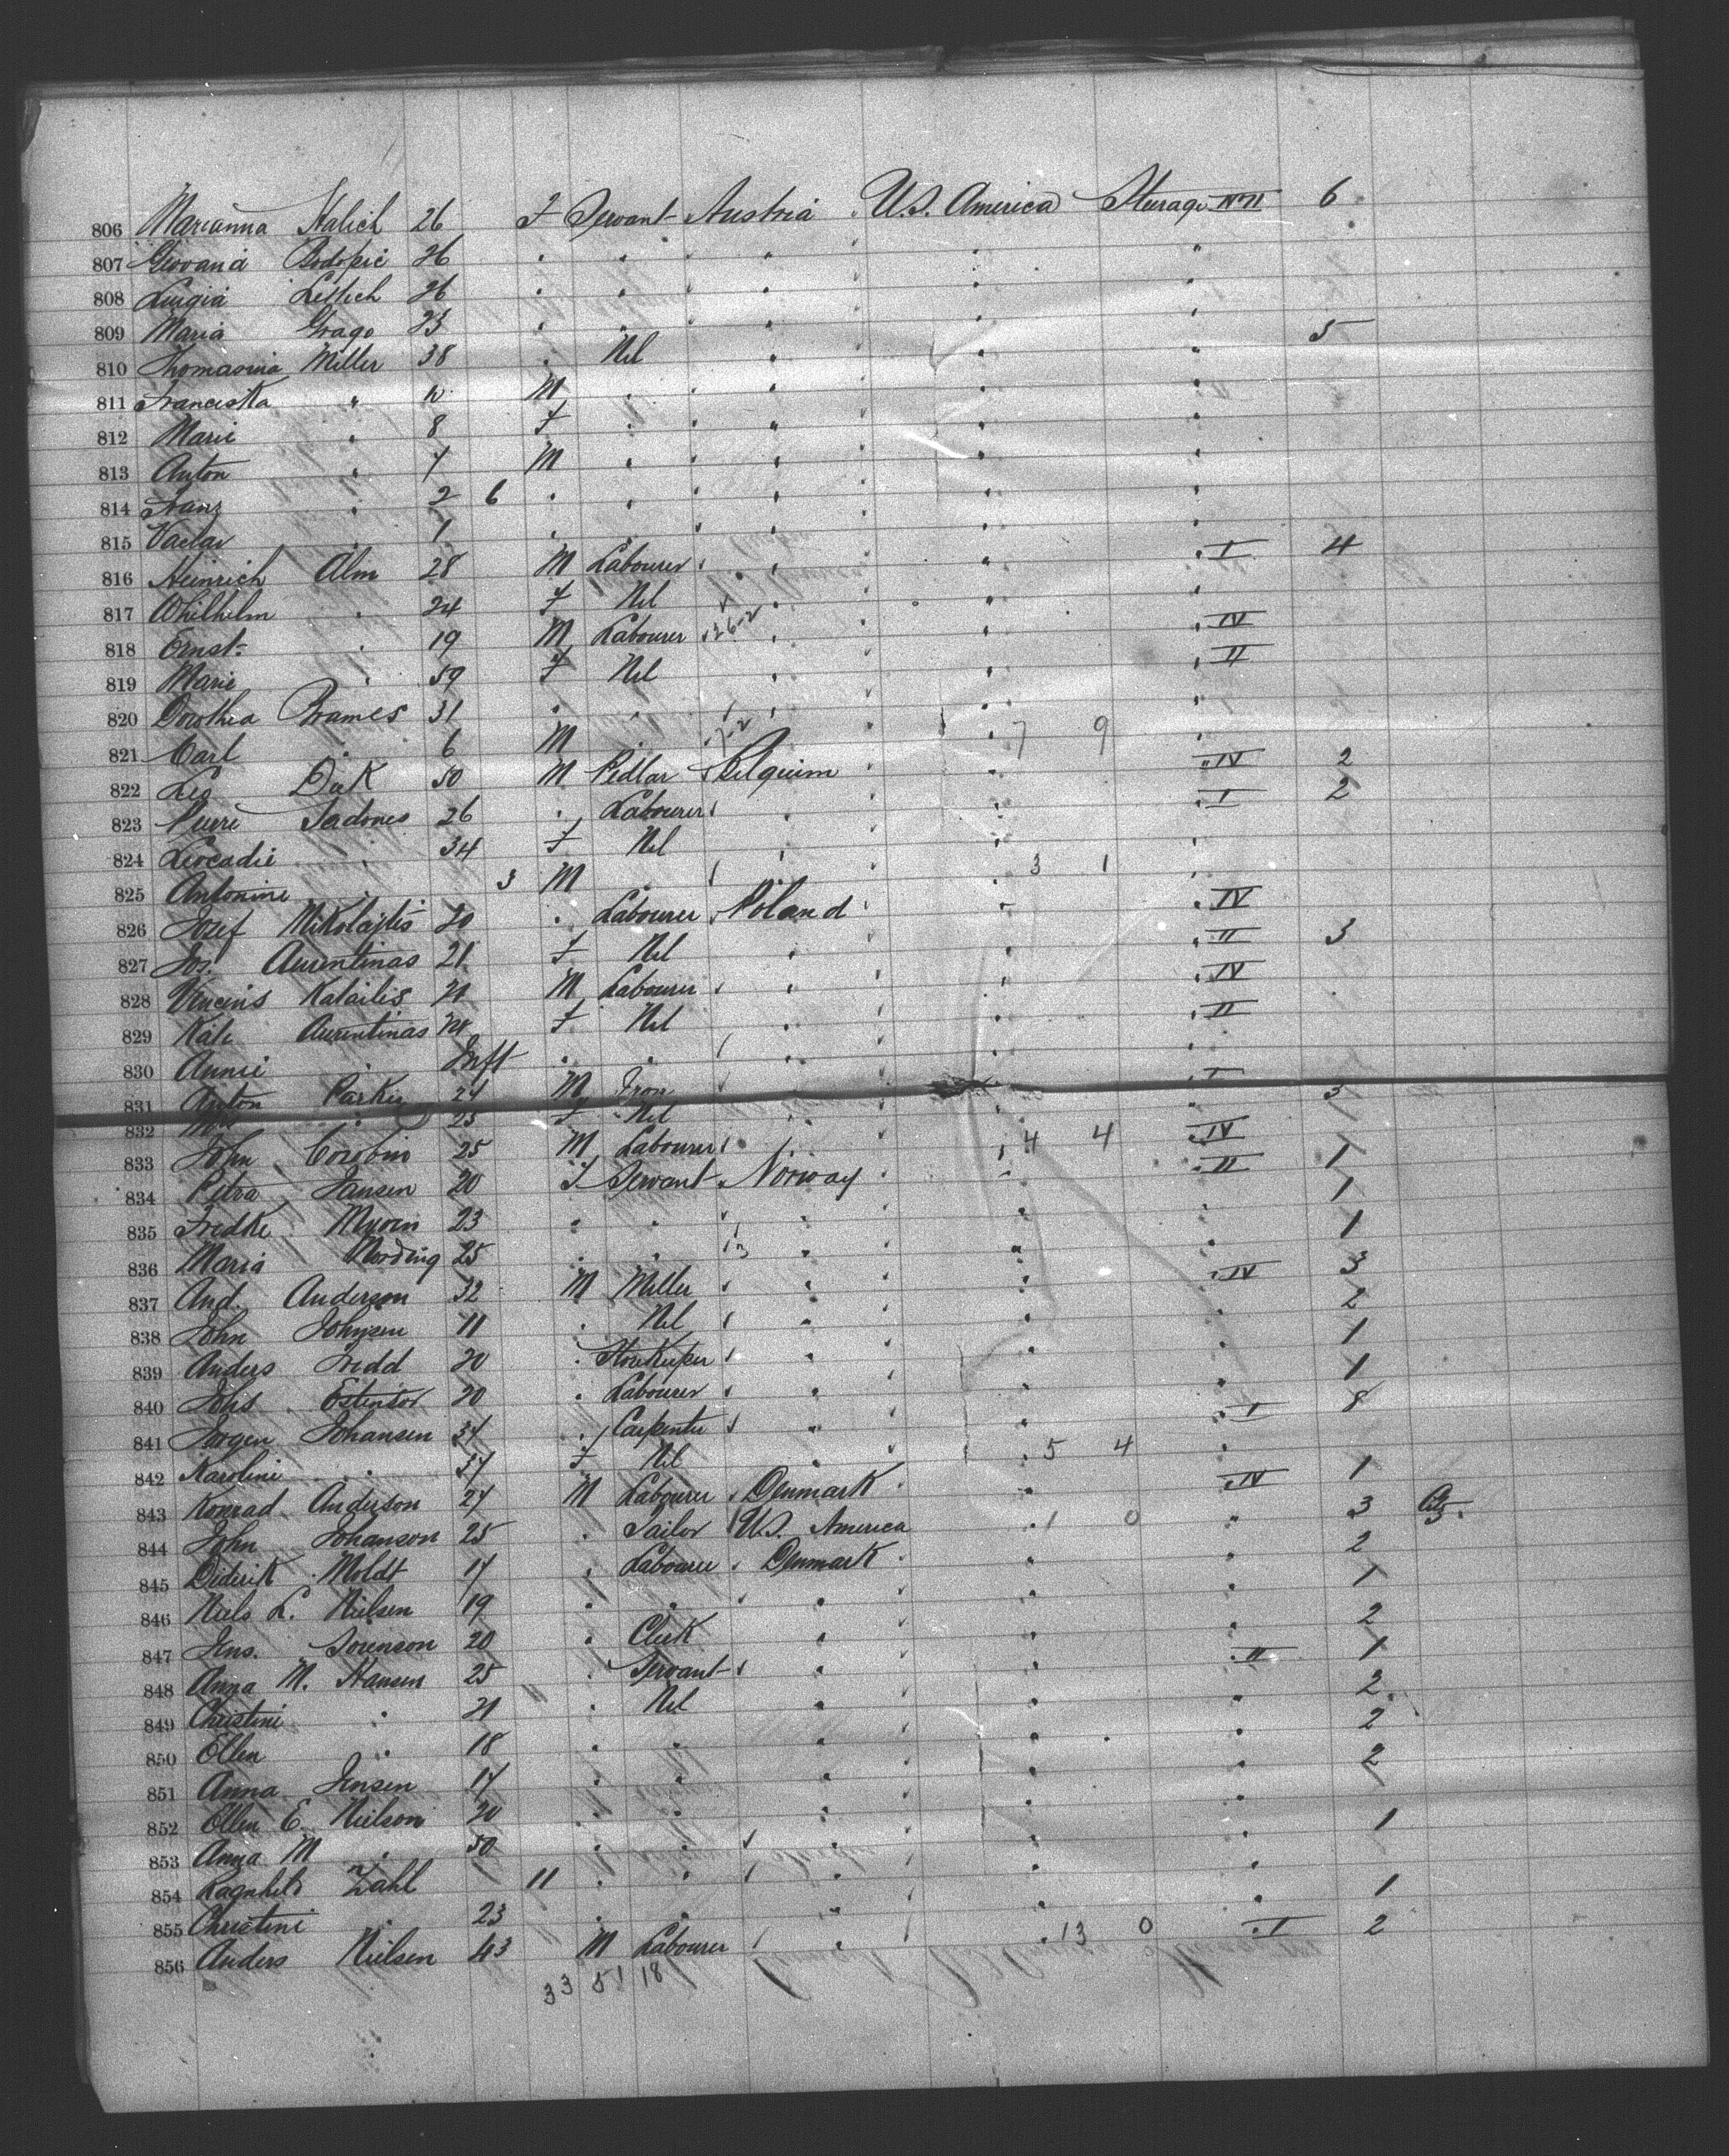 806 Marianna Halich 26 F Servant Austria U.S. America Sturage No II 6
807 Giovana Bodopic 26 " " " " "
808 Luigia Lettich 26 " " " " "
809 Maria Grago 23 " " " " "
810 Thomasina Miller 38 " Nil " " " 5
811 Franciska " 10 M " " " "
812 Marie " 8 F " " " "
813 Anton " 7 M " " " "
814 Franz " 2 6 " " " " "
815 Vaclav 1 " " " " "
816 Heinrich Alm 28 M Labourer " " " I 4
817 Whilhelm " 24 F Nil " " "
818 Ernst " 19 M Labourer 26-2 " " " IV
819 Marie " 59 F Nil " " " II
820 Dorothea Brames 31 " " " " "
821 Carl " 6 M 7-2 " 7 9 "
822 Leo Dik 50 M Pedlar Belguim " " IV 2
823 Pierre Sadones 26 " Labourer " " " I 2
824 Leocadie " 34 F Nil " " "
825 Antonine " 3 M " " " 3 1 "
826 Jozef Mikolajtis 20 " Labourer Poland " " IV
827 Jos. Aurentinas 21 F Nil " " " II 3
828 Vincens Kalailis 21 M Labourer " " " IV
829 Kate Aurentinas 24 F Nil " " " II
830 Annie " Inft " " " " "
831 Anton 24 M Iron " " " I 3
832 " 25 F Nil " " "
833 John Corobin 25 M Labourer " 4 4 " IV
834 Petra Hansen 20 F Servant Norway " " II 1
835 Fredke Myren 23 " " " " " 1
836 Maria Nording 25 " " " " " 1
837 And. Anderson 32 M Miller " " " IV 3
838 John Johnsen 11 " Nil " " " 2
839 Anders Fredd 20 " Storekeeper " " " 1
840 Johs Estensor 20 " Labourer " " " 1
841 Jorgen Johansen 34 " Carpenter " " " I 8
842 Karolini " 37 F Nil " " 5 4 "
843 Konrad Anderson 27 M Labourer Denmark " " IV 1
844 John Johanson 25 " Tailor U.S. America " 1 0 " 3
845 Diderik Moldt 17 " Labourer Denmark " " 2
846 Niels L. Nielsen 19 " " " " " 1
847 Jens. Sorenson 20 " Clerk " " " 2
848 Anna M. Hansen 25 " Servant " " " II 1
849 Christini " 21 " Nil " " " 2
850 Ellen " 18 " " " " " 2
851 Anna Jensen 17 " " " " " 2
852 Ellen E. Nielson 20 " " " " "
853 Anna M " 50 " " " " " 1
854 Ragnhild Zahl 11 " " " " "
855 Christini " 23 " " " " " 1
856 Anders Nielsen 43 M Labourer " " 13 0 " I 2
33 51 18